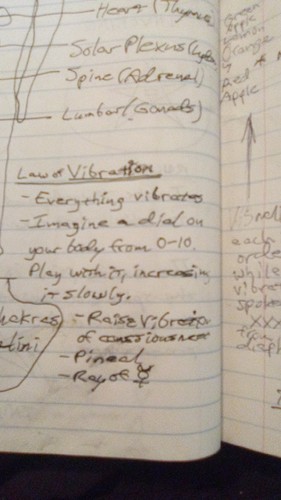 Heart (Thymus)
Solar Plexus
Spine (Adrenal)
Lumbar (Gonads)
Law of Vibration
- Everything vibrates
- Imagine a dial on
your body from 0-10.
Play with it, increasing
it slowly.
- Raise Vibration
of consciousness
- Pineal
- Ray of ☿
Green
Apple
Orange
Red
Apple
each
order
while
vibra
spoke
XXX
from